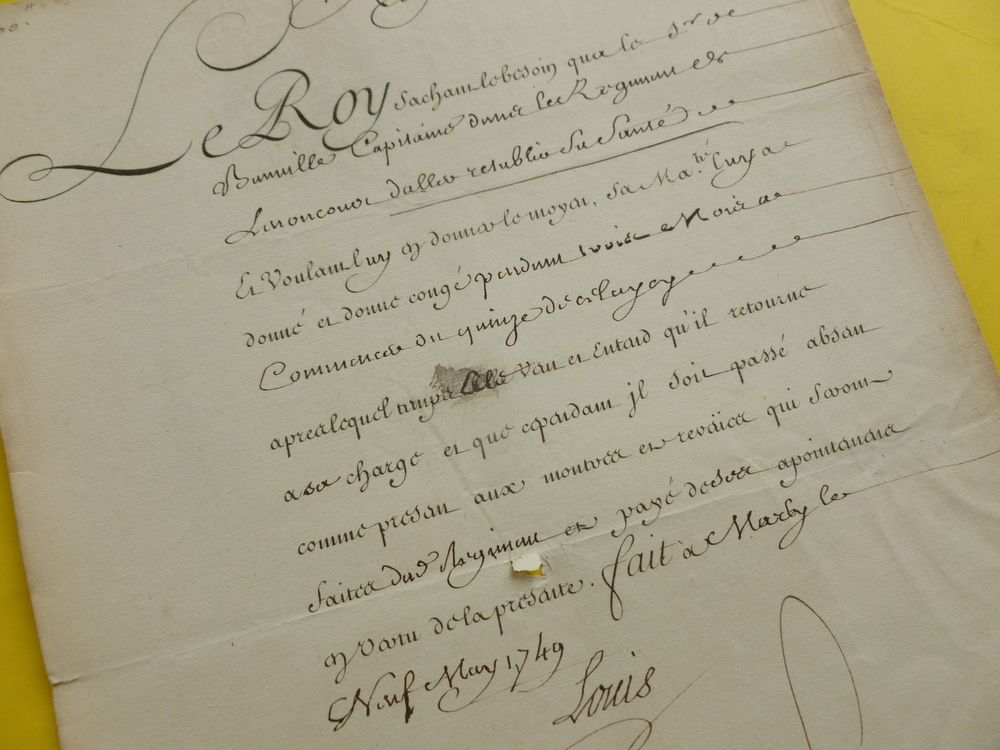 Le Roy sachant le besoin que le S.r de
Capitaine dans les Regiment de
d'aller retablir sa Santé
Et Voulant luy en donner le moyen, sa Ma.té luy a
donné et donne congé pendant trois Mois a
Commencer du quinze de
apres lequel temps Elle Veut et Entend qu'il retourne
a sa charge et que cependant jl soit passé absent
comme present aux montres et reveües qui seront
faites dud. Regiment et payé de ses apointemens
en vertu de la presente. fait a Marly le
Neuf May 1749
Louis